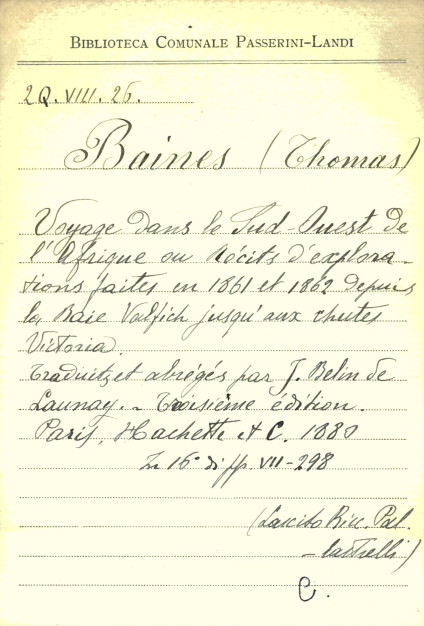 BIBLIOTECA COMUNALE PASSERINI-LANDI
2Q.VIII.26.
Baines (Thomas)
Voyage dans le Sud-Ouest de
l'Afrique ou Récits d'explora-
tions faites en 1861 et 1862 depuis
la Baie Valfich jusqu'aux chutes
Victoria.
Traduits et abrégés par J. Belin de
Launay. - Troisième édition.
Paris, Hachette et C. 1880
In 16° di pp. VII-298
(Lascito Ricc. Pal.
-lastrelli)
C.